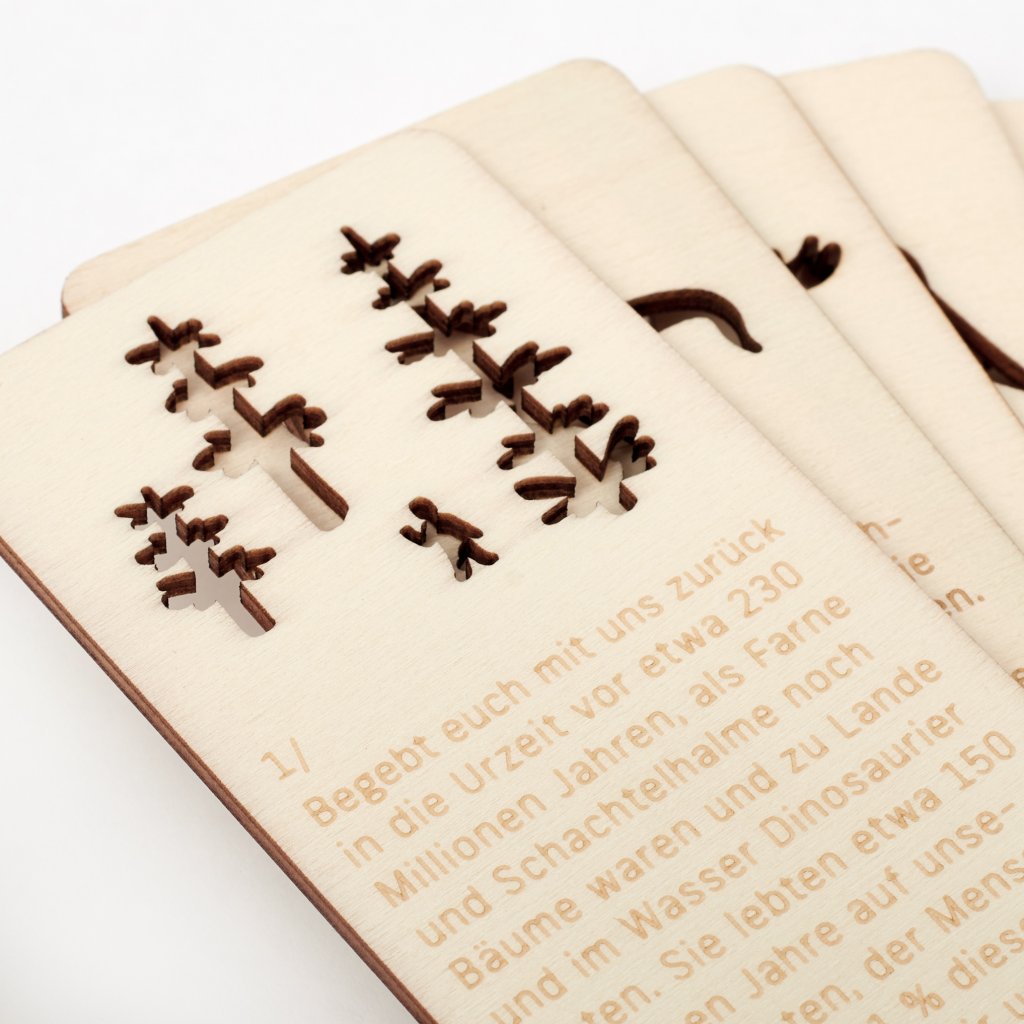 1/
Begebt euch mit uns zurück
in die Urzeit vor etwa 230
Millionen Jahren, als Farne
und Schachtelhalme noch
Bäume waren und zu Lande
und im Wasser Dinosaurier
ten. Sie lebten etwa 150
en Jahre auf unse-
ten, der Mens
% diese
h-
ie
en.